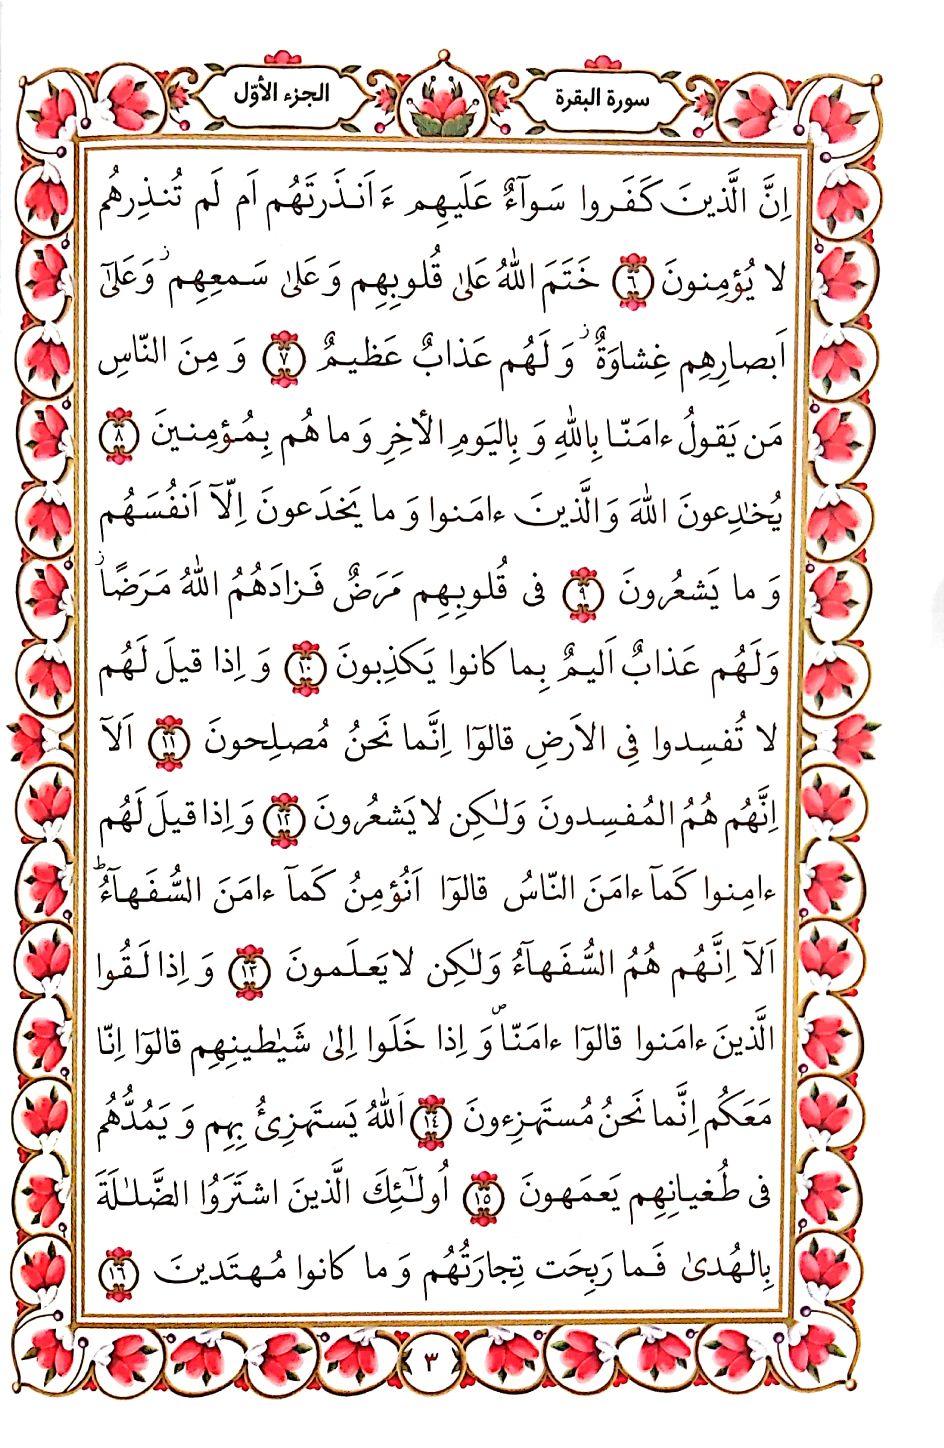 سورة البقرة
الجزء الأوّل
اِنَّ الَّذينَ كَفَروا سَوآءٌ عَلَيهِم ءَاَنذَرتَهُم اَم لَم تُنذِرهُم
لا يُؤمِنونَ ﴿٦﴾ خَتَمَ اللّٰهُ عَلىٰ قُلوبِهِم وَ عَلىٰ سَمعِهِم ز وَ عَلىٰٓ
اَبصارِهِم غِشاوَةٌ ز وَ لَهُم عَذابٌ عَظيمٌ ﴿٧﴾ وَ مِنَ النّاسِ
مَن يَقولُ ءامَنّا بِاللّٰهِ وَ بِاليَومِ الأخِرِ وَ ما هُم بِمُؤمِنينَ ﴿٨﴾
يُخٰدِعونَ اللّٰهَ وَ الَّذينَ ءامَنوا وَ ما يَخدَعونَ اِلّآ اَنفُسَهُم
وَ ما يَشعُرونَ ﴿٩﴾ فى قُلوبِهِم مَرَضٌ فَزادَهُمُ اللّٰهُ مَرَضًا ز
وَلَهُم عَذابٌ اَليمٌ بِما كانوا يَكذِبونَ ﴿١٠﴾ وَ اِذا قيلَ لَهُم
لا تُفسِدوا فِى الاَرضِ قالوٓا اِنَّما نَحنُ مُصلِحونَ ﴿١١﴾ اَلآ
اِنَّهُم هُمُ المُفسِدونَ وَلٰكِن لا يَشعُرونَ ﴿١٢﴾ وَ اِذا قيلَ لَهُم
ءامِنوا كَمآ ءامَنَ النّاسُ قالوٓا اَنُؤمِنُ كَمآ ءامَنَ السُّفَهآءُ ط
اَلآ اِنَّهُم هُمُ السُّفَهآءُ وَلٰكِن لا يَعلَمونَ ﴿١٣﴾ وَ اِذا لَقُوا
الَّذينَ ءامَنوا قالوٓا ءامَنّا ص وَ اِذا خَلَوا اِلىٰ شَيٰطينِهِم قالوٓا اِنّا
مَعَكُم اِنَّما نَحنُ مُستَهزِءونَ ﴿١٤﴾ اَللّٰهُ يَستَهزِئُ بِهِم وَ يَمُدُّهُم
فى طُغيانِهِم يَعمَهونَ ﴿١٥﴾ اُولٰٓئِكَ الَّذينَ اشتَرَوُا الضَّلٰلَةَ
بِالهُدىٰ فَما رَبِحَت تِجارَتُهُم وَ ما كانوا مُهتَدينَ ﴿١٦﴾
٣